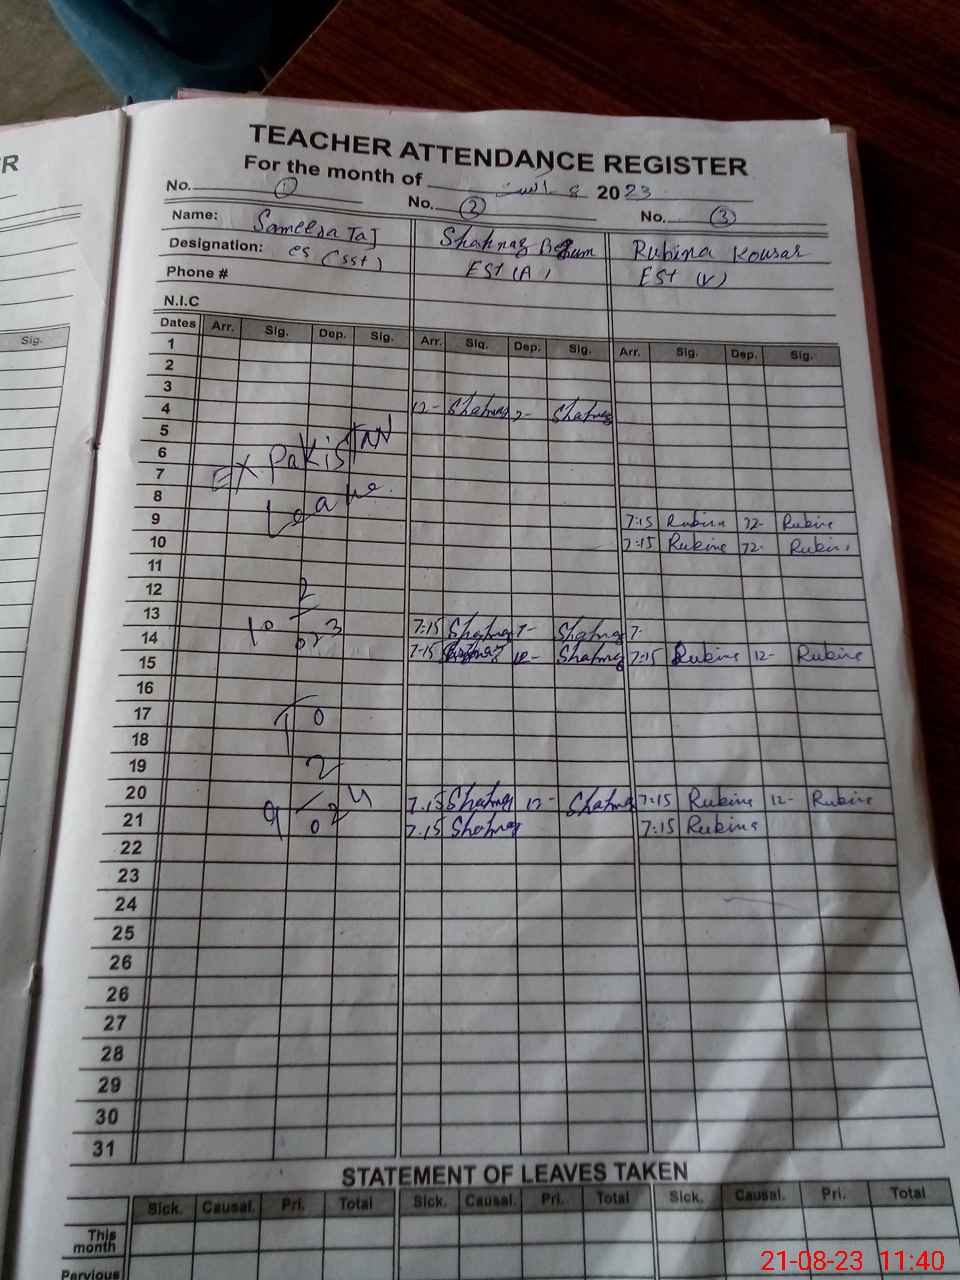 R
TEACHER ATTENDANCE REGISTER
For the month of اگست 8 2023
No. 1 No. 2 No. 3
Name: Sameera Taj Shahnaz Begum Rubina Kousar
Designation: es (sst) EST (A) EST (V)
Phone #
N.I.C
Sig.
Dates Arr. Sig. Dep. Sig. Arr. Sig. Dep. Sig. Arr. Sig. Dep. Sig.
1
2
3
4 12- Shahnaz Shahnaz
5
6 EX Pakistan
7
8 Leave
9 7:15 Rubina 12- Rubina
10 7:15 Rubina 12- Rubina
11
12
13 10 2/023
14 7:15 Shahnaz Shahnaz 7-
15 7:15 Shahnaz 12- Shahnaz 7:15 Rubina 12- Rubina
16
17 To
18
19
20 7.15 Shahnaz 12- Shahnaz 7:15 Rubina 12- Rubina
21 9 2/024 7.15 Shahnaz 7:15 Rubina
22
23
24
25
26
26
27
28
29
30
31
STATEMENT OF LEAVES TAKEN
Sick. Causal. Pri. Total Sick. Causal. Pri. Total Sick. Causal. Pri. Total
This month
Pervious
21-08-23 11:40